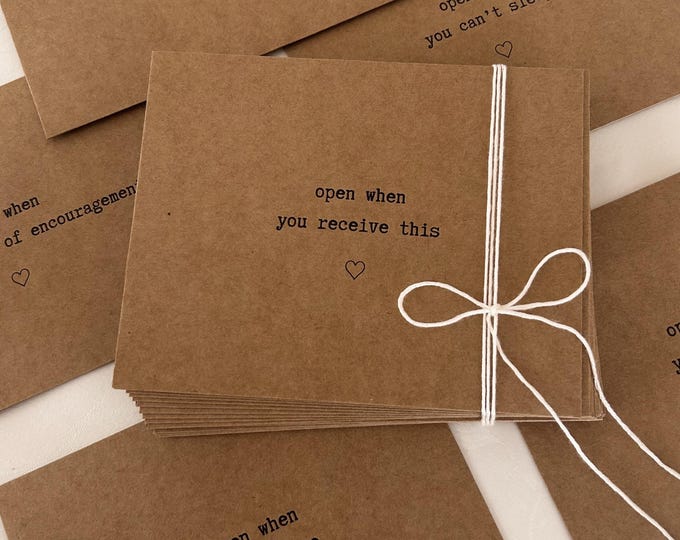 open when
you can't
when
of encouragement
open when
you receive this
open when